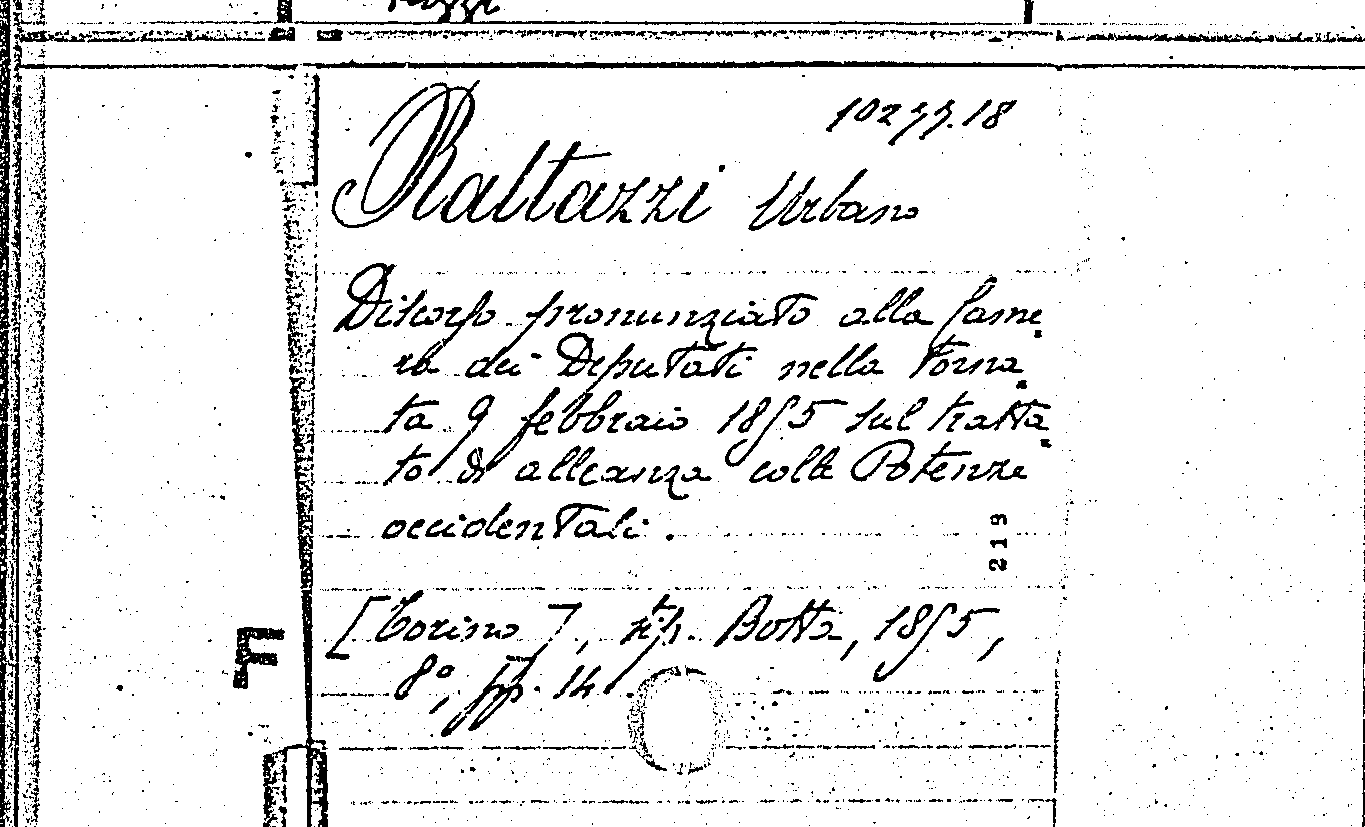 10277.18
Rattazzi Urbano
Discorso pronunziato alla Came-
ra dei Deputati nella torna-
ta 9 febbraio 1855 sul tratta-
to di alleanza colle Potenze
occidentali.
219
[Torino], tip. Botta, 1855,
8°, pp. 14.